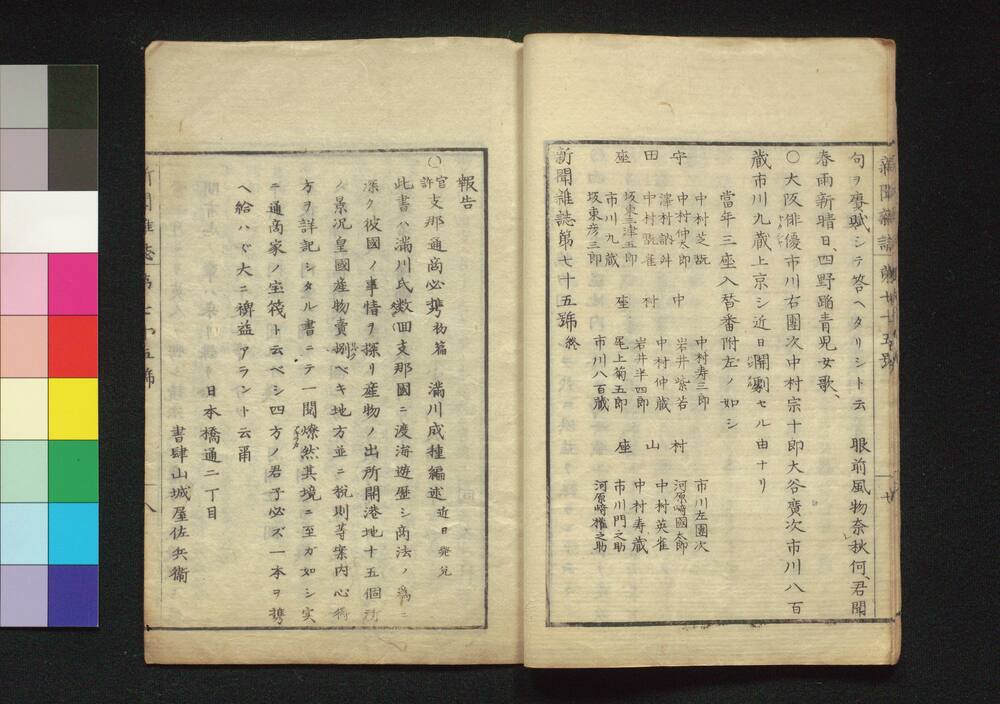 新聞雜誌 第七十五號
句ヲ賡賦シテ答ヘタリシト云 眼前風物奈秋何、君聞
春雨新晴日、四野踏青児女歌、
〇大阪俳優市川右團次中村宗十郎大谷廣次市川八百
蔵市川九蔵上京シ近日開劇セル由ナリ
當年三座入替番附左ノ如シ
中村芝翫 中村寿三郎 市川左團次
守 中村仲太郎 中 岩井紫若 村 河原崎國太郎
澤村訥舛 中村仲蔵 中村英雀
田 中村翫雀 村 岩井半四郎 山 中村寿蔵
坂東三津五郎 尾上菊五郎 市川門之助
座 市川九蔵 座 市川八百蔵 座 河原崎権之助
坂東彦三郎
新聞雜誌第七十五號 終
報告
〇官許 支那通商必携 初篇 滿川成種編述 近日発兌
此書ハ滿川氏數回支那國ニ渡海遊歴シ商法ノ為ニ
深ク彼國ノ事情ヲ探リ産物ノ出所開港地十五個所
ノ景况皇國産物賣捌ベキ地方並ニ税則等案内心得
方ヲ詳記シタル書ニテ一閲燎然其境ニ至ガ如シ実
ニ通商家ノ宝筏ト云ベシ四方ノ君子必ズ一本ヲ携
ヘ給ハヾ大ニ裨益アラント云爾
日本橋通二丁目
書肆山城屋佐兵衞